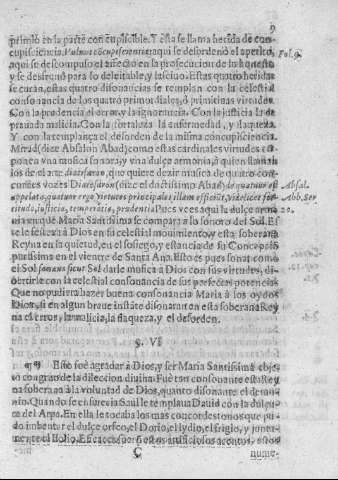 9
primio en la parte concupiscible. Y esta se llama herida de con-
cupiscencia. Vulnus cõcupiscentiæ: aqui se desordenó el apetito,
aqui se descompuso el afecto en la prosecucion de lo honesto
y se desfrenò para lo deleitable, y lascivo. Estas quatro heridas
se curan, estas quatro disonancias se templan con la celestial
consonancia de los quatro primordiales, ò primitivas virtudes.
Con la prudencia el error, y la ignorancia. Con la justicia la de-
pravada malicia. Con la fortaleza la enfermedad, y flaqueza.
Y con la templança el desorden de la misma concupisciencia.
Mirad (dize Absalon Abad) como estas cardinales virtudes cõ-
ponen vna musica sonora, y vna dulçe armonia, à quien llaman
los de el arte diatesaron, que quiere dezir musica de quatro con-
cordes vozes Diatesaron (dize el doctissimo Abad) de quatuor est
appelato, quatuor ergo virtutes principales illam efficiũt, videlicet for-
titudo, justicia, temperatia, prudentia. Pues vees aqui la dulçe armo
nia en què Maria Santissima se compara a lo sonoro del Sol. Es-
te le señala à Dios en su celestial movimiento, y esta soberana
Reyna en la quietud, en el sosiego, y estancia de su Concepciõ
purissima en el vientre de Santa Ana. Esto es pues sonar como
el Sol sonans sicut Sol darle musica à Dios con sus virtudes, di-
vertirle con la celestial consonancia de sus perfectas potencias
Que no pudiera hazer buena consonancia Maria à los oydos
Dios, si en algun breve instãte disonaran en esta soberana Rey
na el error, la malicia, la flaqueza, y el desorden.
§. VI
¶¶ Esso fuè agradar à Dios, y ser Maria Santissima obje-
to congrao de la dileccion divina. Fuè tan consonante esta Rey
na soberana à la voluntad de Dios, quanto disonante el demo-
nio. Quando se enfurecia Saul le templaua David con la dulçu-
ra del Arpa. En ella le tocaba los mas concordes tonos que pu-
do inventar el dulçe orfeo, el Dorio, el lydio, el frigio, y
C
nume-
Fol. 9.
Absal.
Abb. Ser.
20.